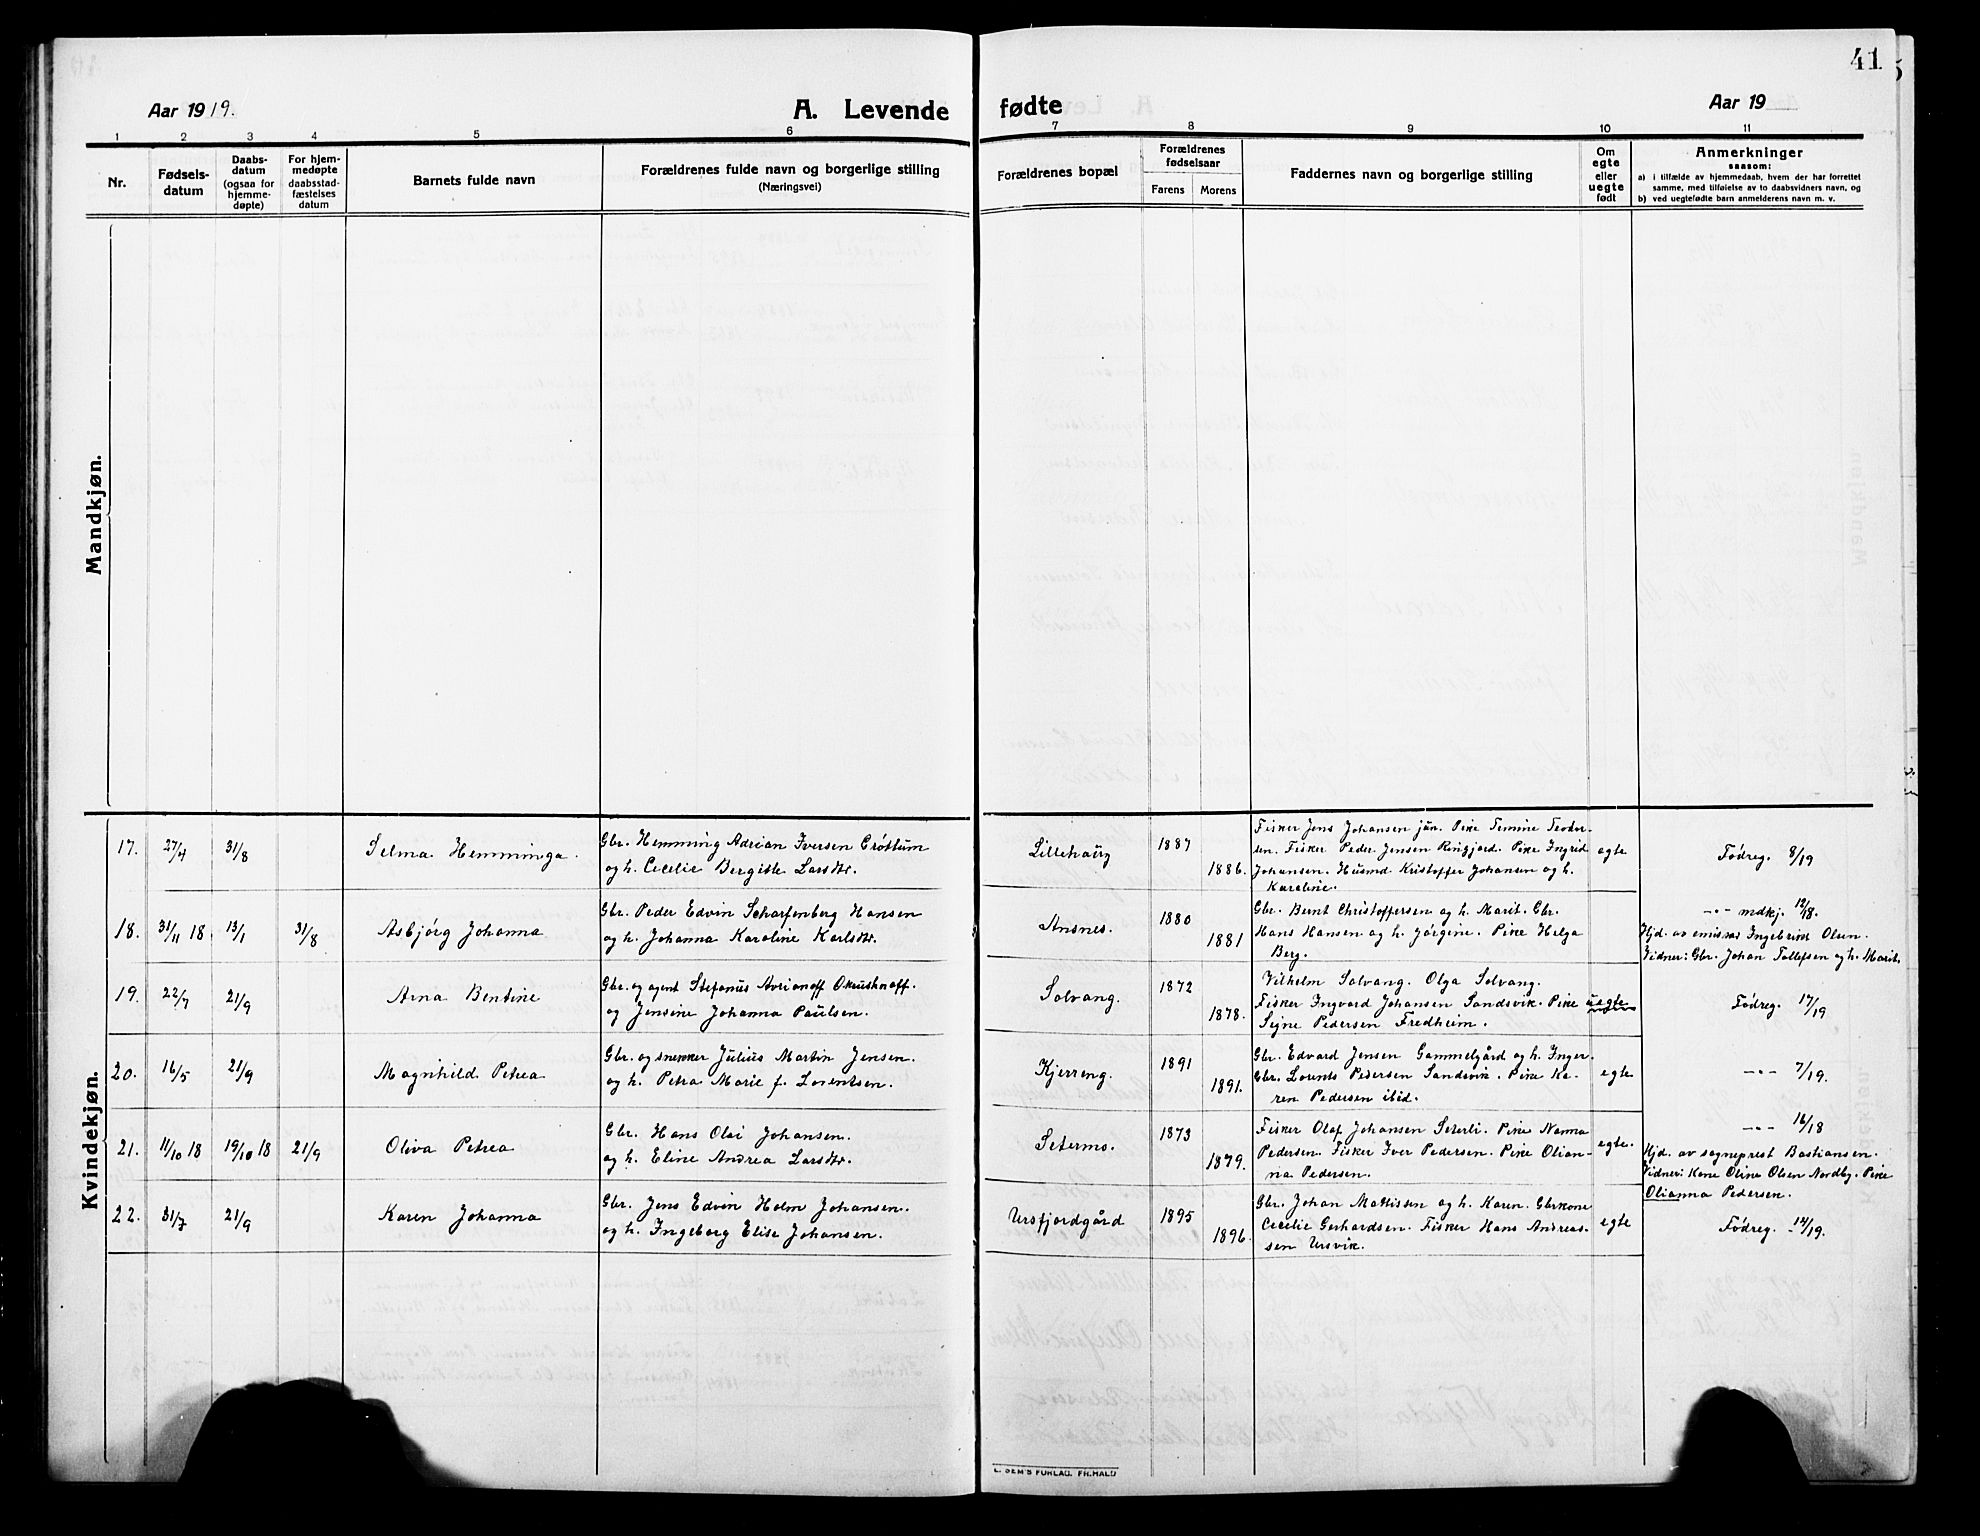 41
Aar 1919.
A. Levende
fødte
Aar 19
1 2 3 4 5 6 7 8 9 10 11
Nr.
Fødsels-
datum
Daabs-
datum
(ogsaa for
hjemme-
døpte)
For hjem-
medøpte
daabsstad-
fæstelses
datum
Barnets fulde navn
Forældrenes fulde navn og borgerlige stilling
(Næringsvei)
Forældrenes bopæl
Forældrenes
fødselsaar
Farens Morens
Faddernes navn og borgerlige stilling
Om
egte
eller
uegte
født
Anmerkninger
saasom:
a) i tilfælde av hjemmedaab, hvem der har forrettet
samme, med tilføielse av to daabsvidners navn, og
b) ved uegtefødte barn anmelderens navn m. v.
Mandkjøn.
Kvindekjøn.
17. 27/4 31/8
Selma Hemminga.
Gbr. Hemming Adrian Iversen Gröttum
og h. Cecelie Bergitte Larsdtr.
Lillehaug
1887
1886.
Fisker Jens Johansen jün. Pike Temine Teodor-
sen. Fisker Peder Jensen Ringjord. Pike Ingrid
Johansen. Husmd. Kristoffer Johansen og h.
Karoline.
egte
Födreg. 8/19
18. 31/11 18 13/1 31/8
Asbjörg Johanna
Gbr. Peder Edvin Scharfenberg Hansen
og h. Johanna Karoline Karlsdtr.
Ansnes.
1880
1881
Gbr. Bernt Christoffersen og h. Marit. Gbr.
Hans Hansen og h. Jörgine. Pike Helga
Berg.
-"- mdkj. 12/18.
Hjd. av emissær Ingebrikt Olsen.
Vidner: Gbr. Johan Tollefsen og h. Marit.
19. 22/7 21/9
Arna Bentine
Gbr. og agent Stefanus Avrianoff Okrushnoff.
og Jensine Johanna Paulsen.
Solvang.
1872
1878.
Vilhelm Solvang. Olga Solvang.
Fisker Ingvard Johansen Sandsvik. Pike
Signe Pedersen Fredheim.
uegte
Födreg. 17/19
20. 16/5 21/9
Magnhild Petrea
Gbr. og snekker Julius Martin Jensen.
og h. Petra Marie f. Lorentsen.
Kjerreng.
1891
1891.
Gbr. Edvard Jensen Gammelgård og h. Inger.
Gbr. Lorents Pedersen Sandsvik. Pike Ka-
ren Pedersen ibid.
egte
-"- 7/19.
21. 11/10 18 19/10 18 21/9
Oliva Petrea
Gbr. Hans Olai Johansen.
og h. Eline Andrea Larsdtr.
Setermo.
1873
1879.
Fisker Olaf Johansen Seterli. Pike Nanna
Pedersen. Fisker Iver Pedersen. Pike Olian-
na Pedersen.
egte.
-"- 16/18
Hjd. av sogneprest Bastiansen.
Vidner: Kone Oline Olsen Nordby. Pike
Olianna Pedersen.
22. 31/7 21/9
Karen Johanna
Gbr. Jens Edvin Holm Johansen.
og h. Ingeborg Elise Johansen.
Ursfjordgård
1895
1896.
Gbr. Johan Mattisen og h. Karen. Gbrkone
Cecelie Gerhardsen. Fisker Hans Andreas-
sen Ursvik.
egte
Födreg. 12/19.
E. SEM'S FORLAG. FR.HALD